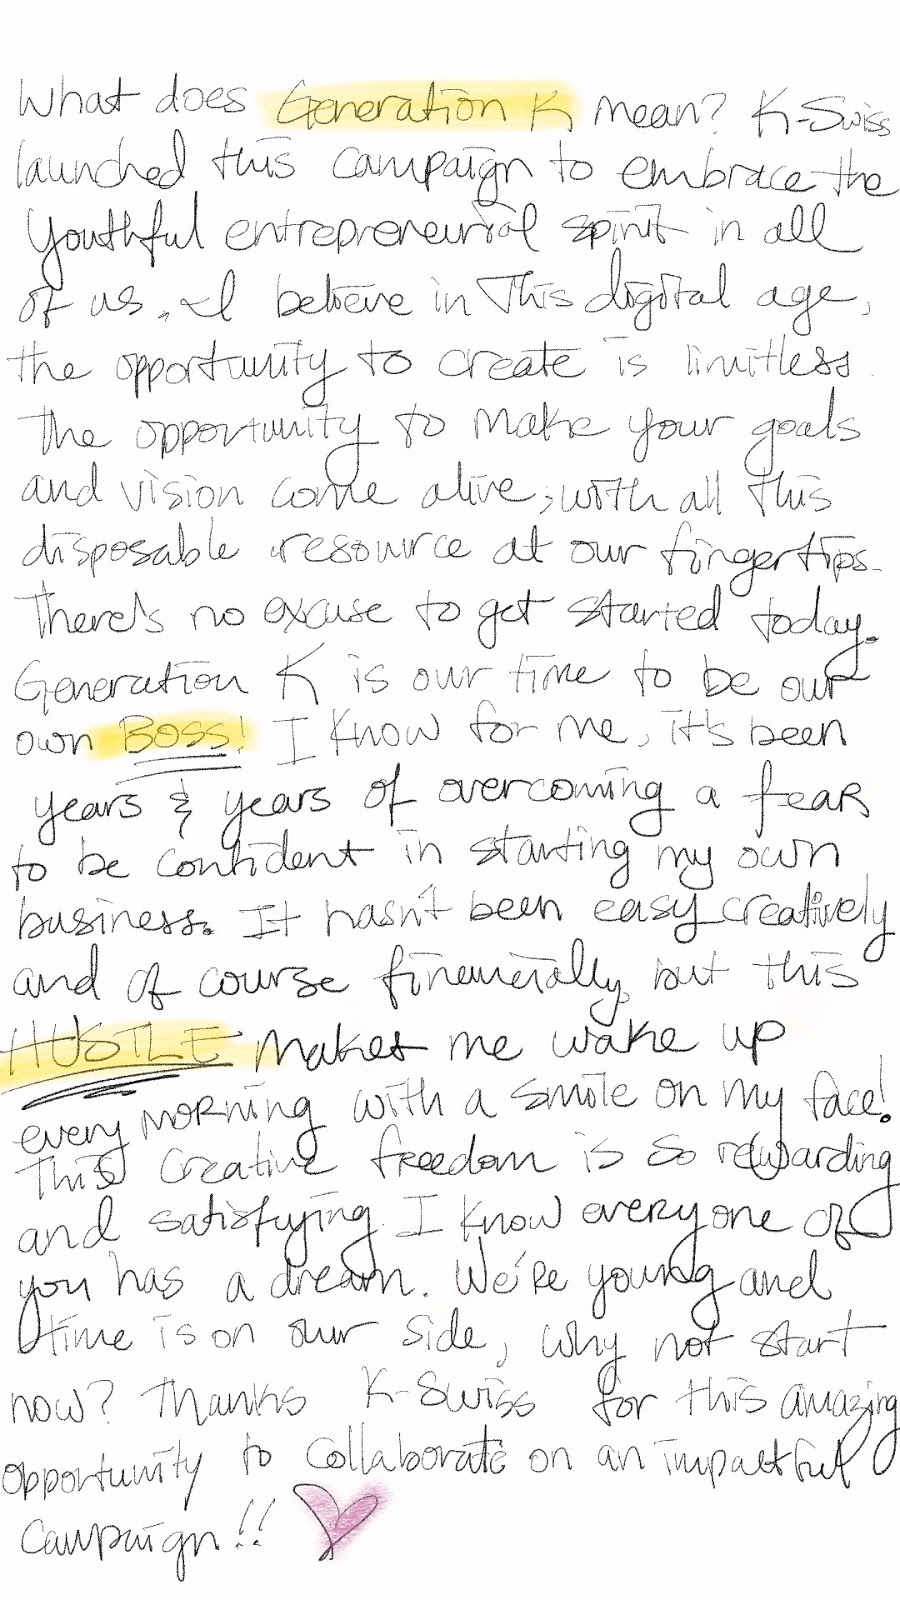 What does Generation K mean? K-Swiss
launched this campaign to embrace the
Youthful entrepreneurial spirit in all
of us. I believe in This digital age,
the opportunity to create is limitless.
The opportunity to make your goals
and vision come alive; with all this
disposable resource at our fingertips.
There's no excuse to get started today.
Generation K is our time to be our
own BOSS! I know for me, it's been
years & years of overcoming a fear
to be confident in starting my own
business. It hasn't been easy creatively
and of course financially, but this
HUSTLE makes me wake up
every morning with a smile on my face!
This creative freedom is so rewarding
and satisfying. I know everyone of
you has a dream. We're young and
time is on our side, why not start
now? Thanks K-Swiss for this amazing
opportunity to collaborate on an impactful
campaign!!